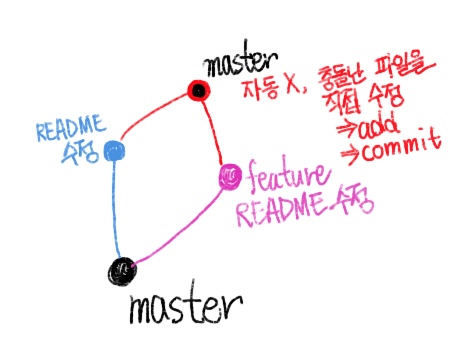 master
자동 X, 충돌난 파일을
직접 수정
⇒add
⇒commit
README
수정
feature
README 수정
master